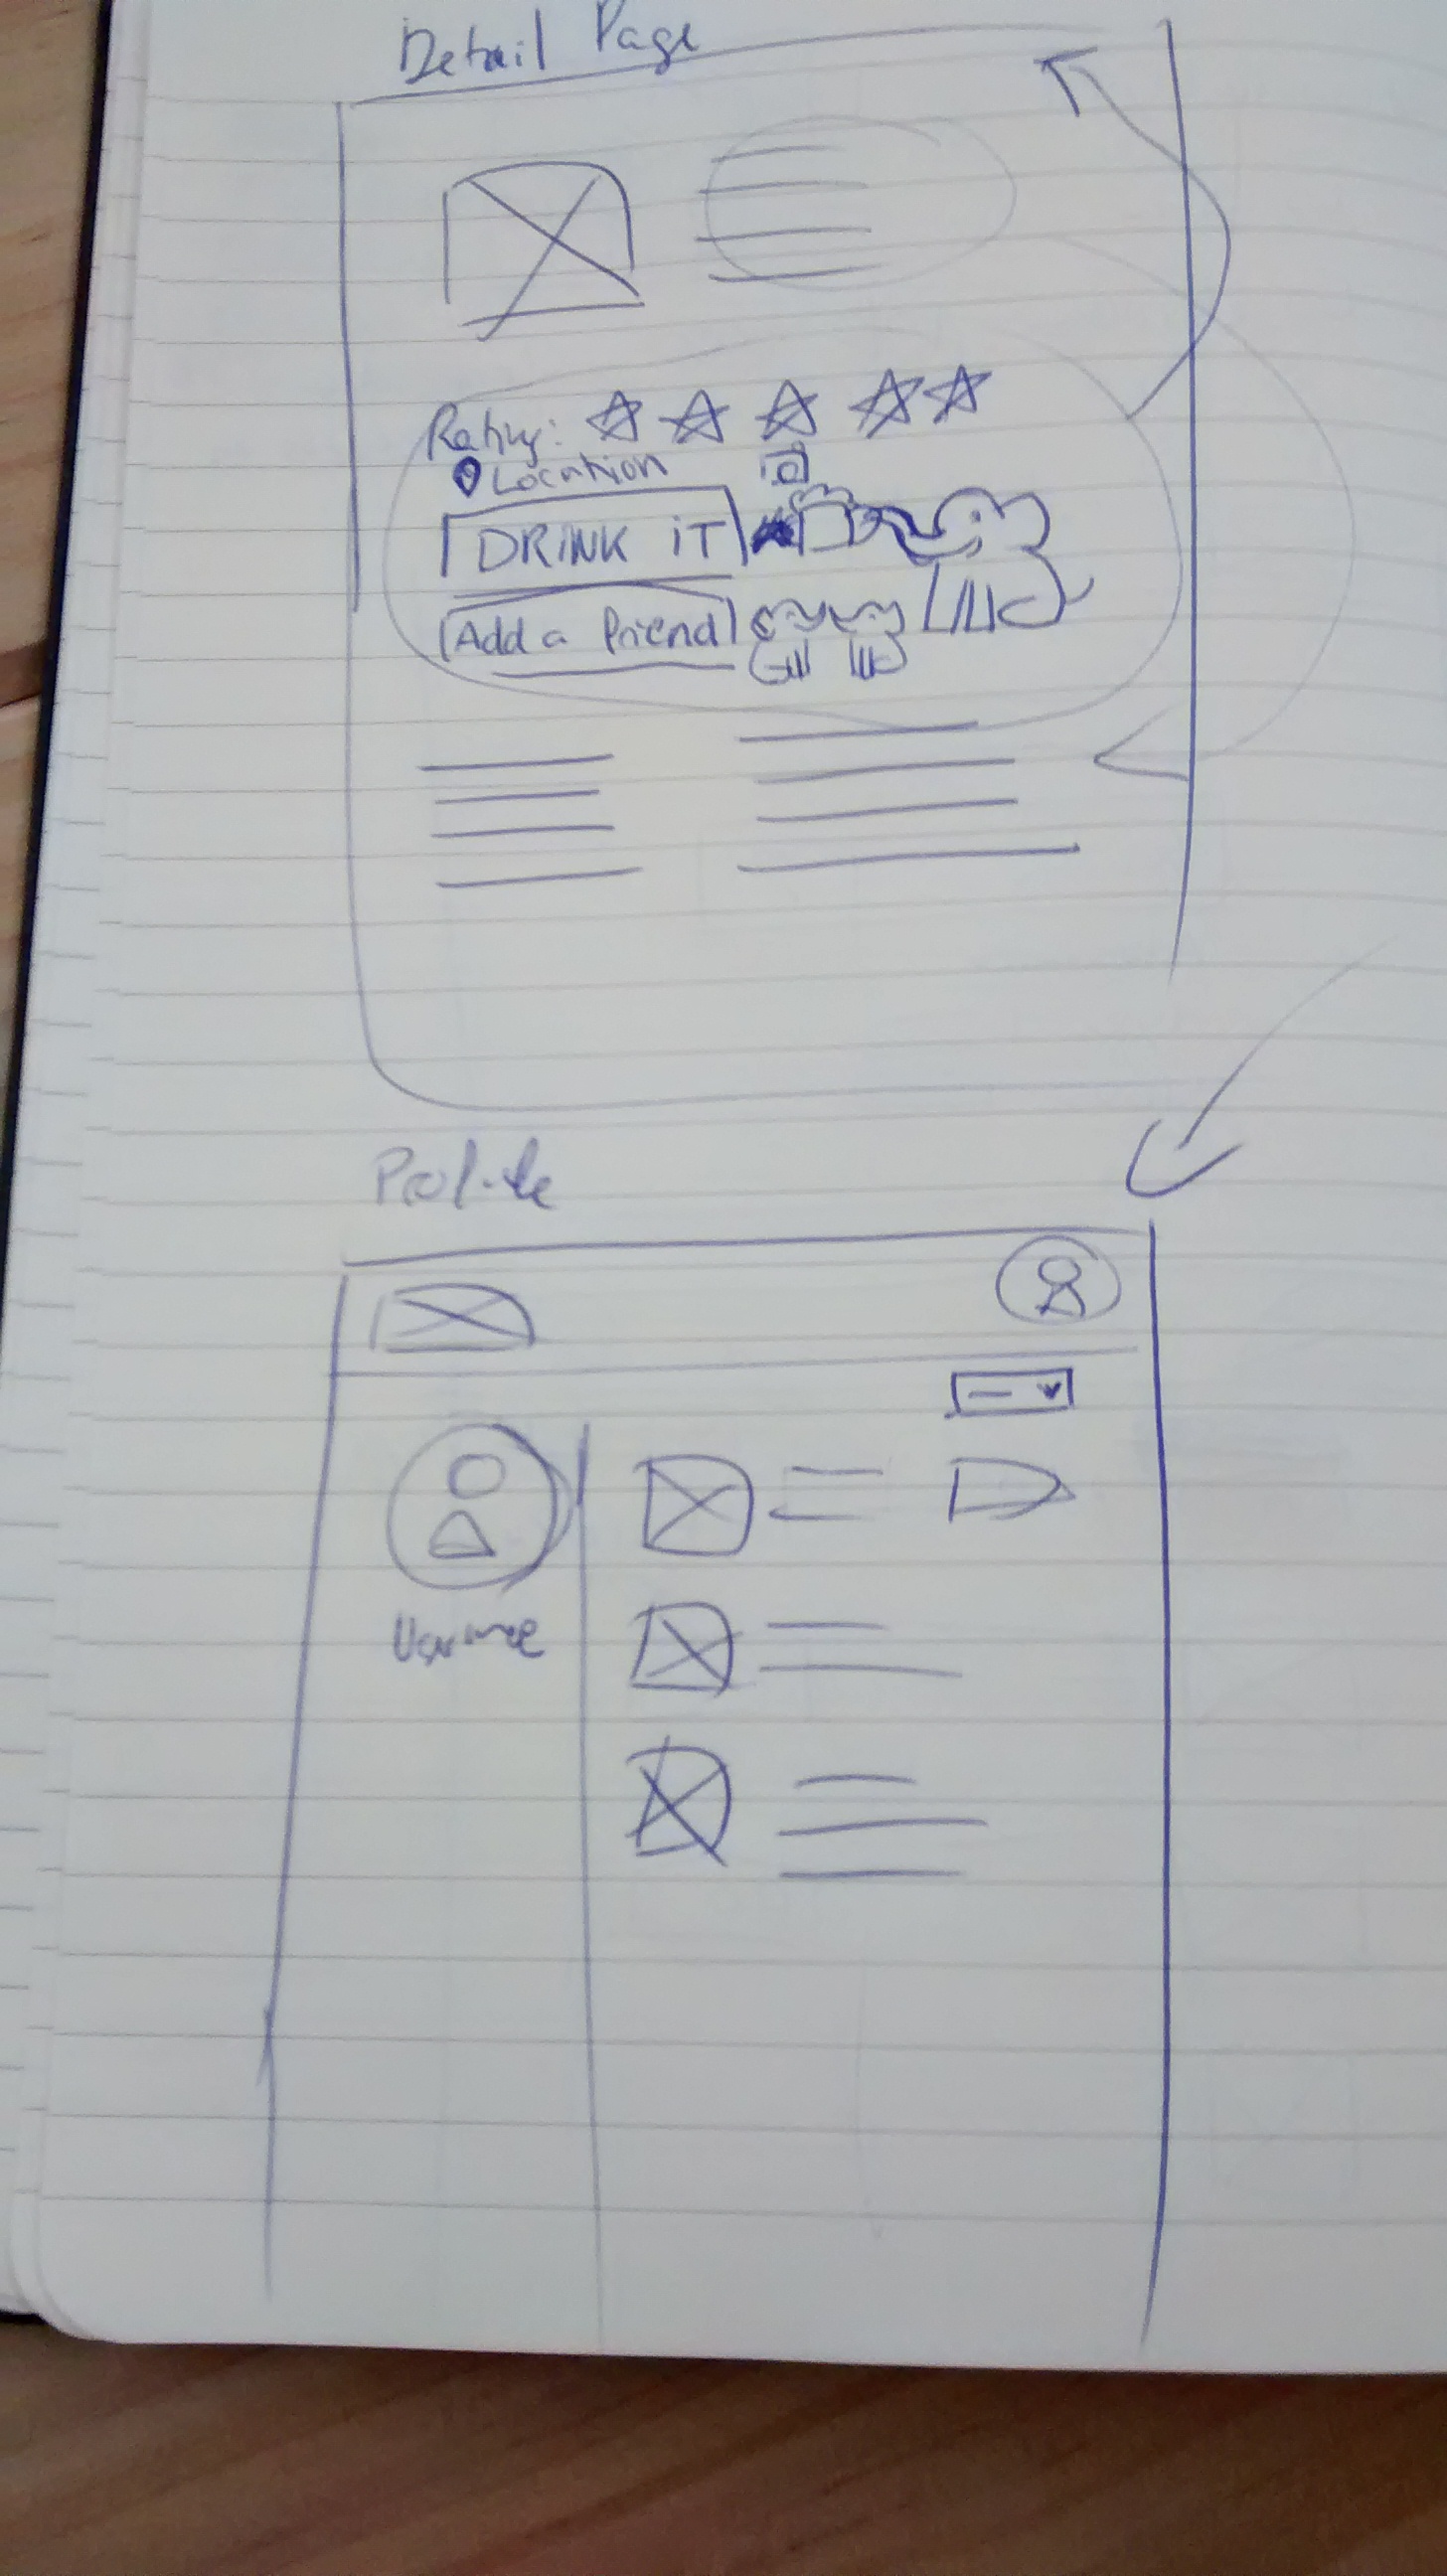 Detail Page
Rating:
Location
DRINK iT
Add a friend
Profile
Username